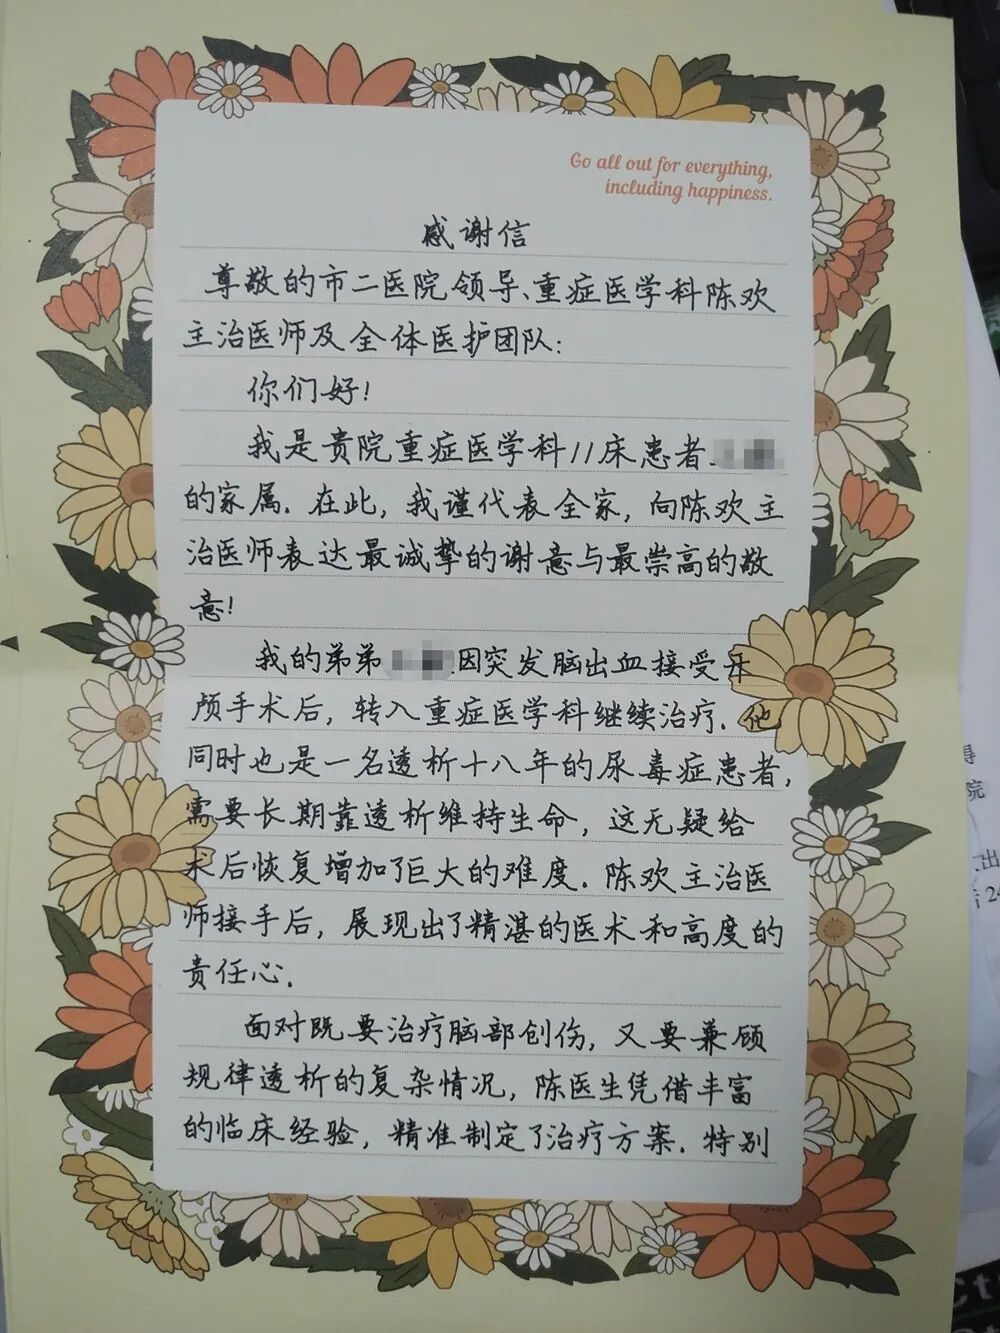 Go all out for everything,
including happiness.
感谢信
尊敬的市二医院领导、重症医学科陈欢
主治医师及全体医护团队:
你们好!
我是贵院重症医学科11床患者
的家属.在此,我谨代表全家,向陈欢主
治医师表达最诚挚的谢意与最崇高的敬
意!
我的弟弟 因突发脑出血接受开
颅手术后,转入重症医学科继续治疗.他
同时也是一名透析十八年的尿毒症患者,
需要长期靠透析维持生命,这无疑给
术后恢复增加了巨大的难度.陈欢主治医
师接手后,展现出了精湛的医术和高度的
责任心.
面对既要治疗脑部创伤,又要兼顾
规律透析的复杂情况,陈医生凭借丰富
的临床经验,精准制定了治疗方案.特别
得
院
出
24
Ct